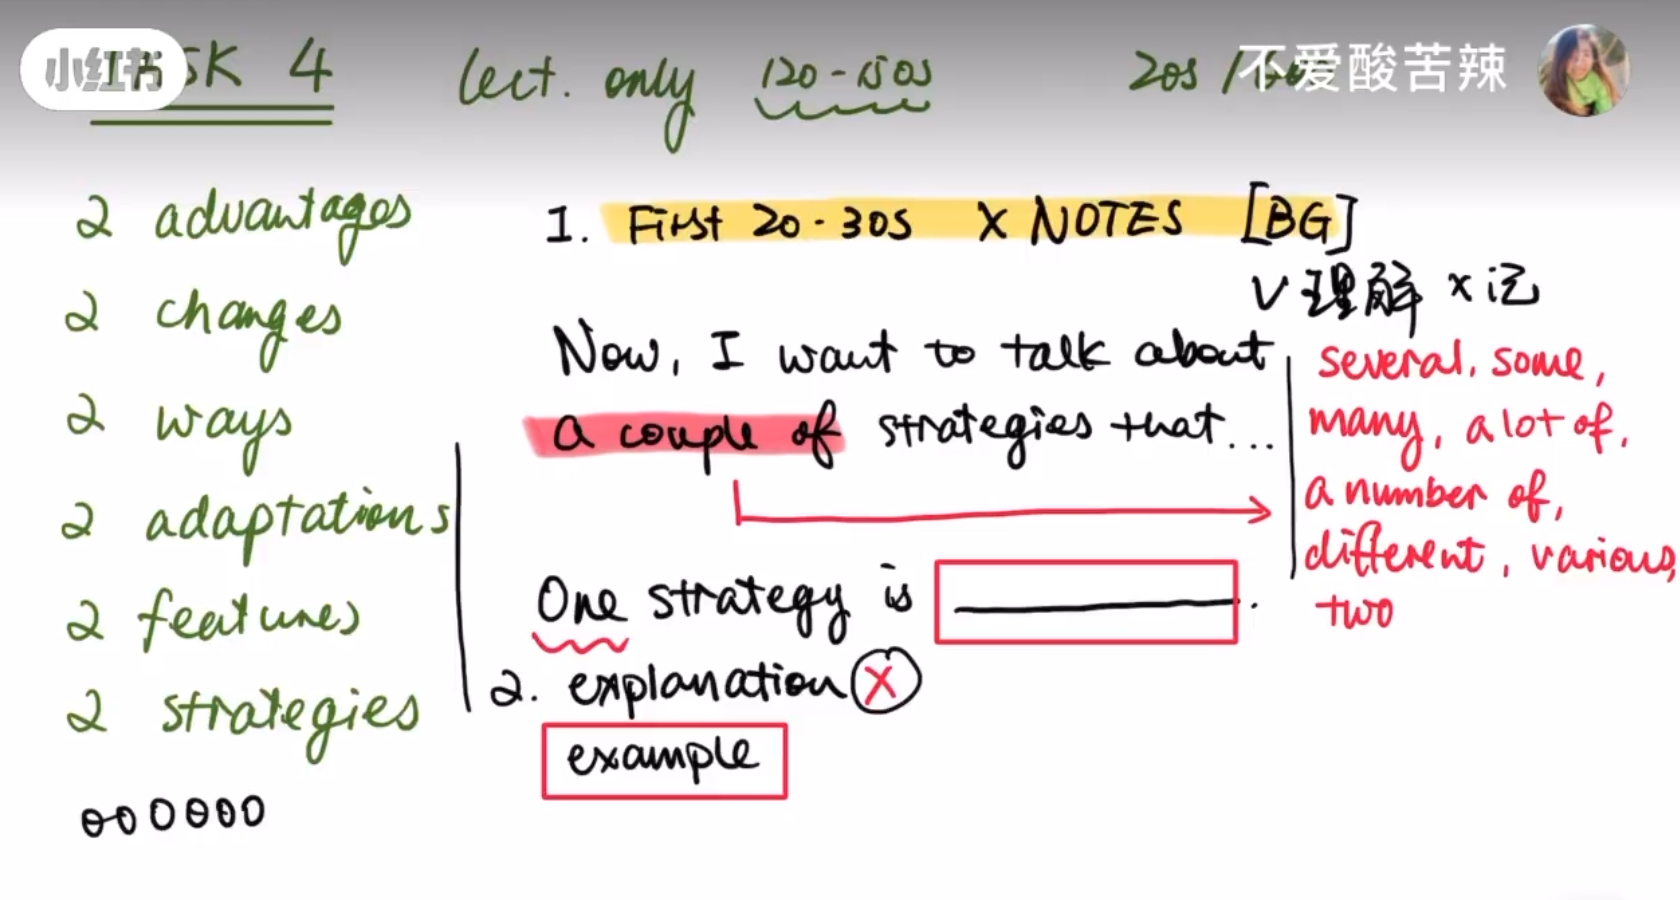 小红书
TASK 4 lect. only 120-150s 20s /
不爱酸苦辣
2 advantages
2 changes
2 ways
2 adaptations
2 features
2 strategies
1. First 20-30s X NOTES [BG]
V 理解 X 记
Now, I want to talk about
a couple of strategies that...
several, some,
many, a lot of,
a number of,
different, various,
two
One strategy is ______.
2. explanation X
example